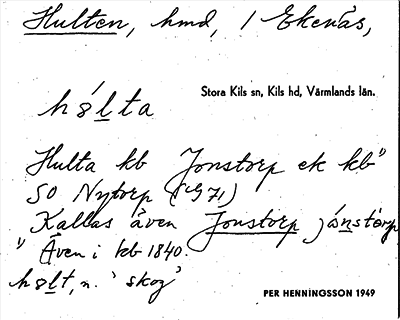 Hulten, hmd, / Ekenäs,
Stora Kils sn, Kils hd, Värmlands län.
hólta
Hulta kb Jonstorp ek kb"
SO Nytorp (G71)
Kallas även Jonstorp jónstorp
" Även i kb 1840.
holt, n. 'skog'
PER HENNINGSSON 1949